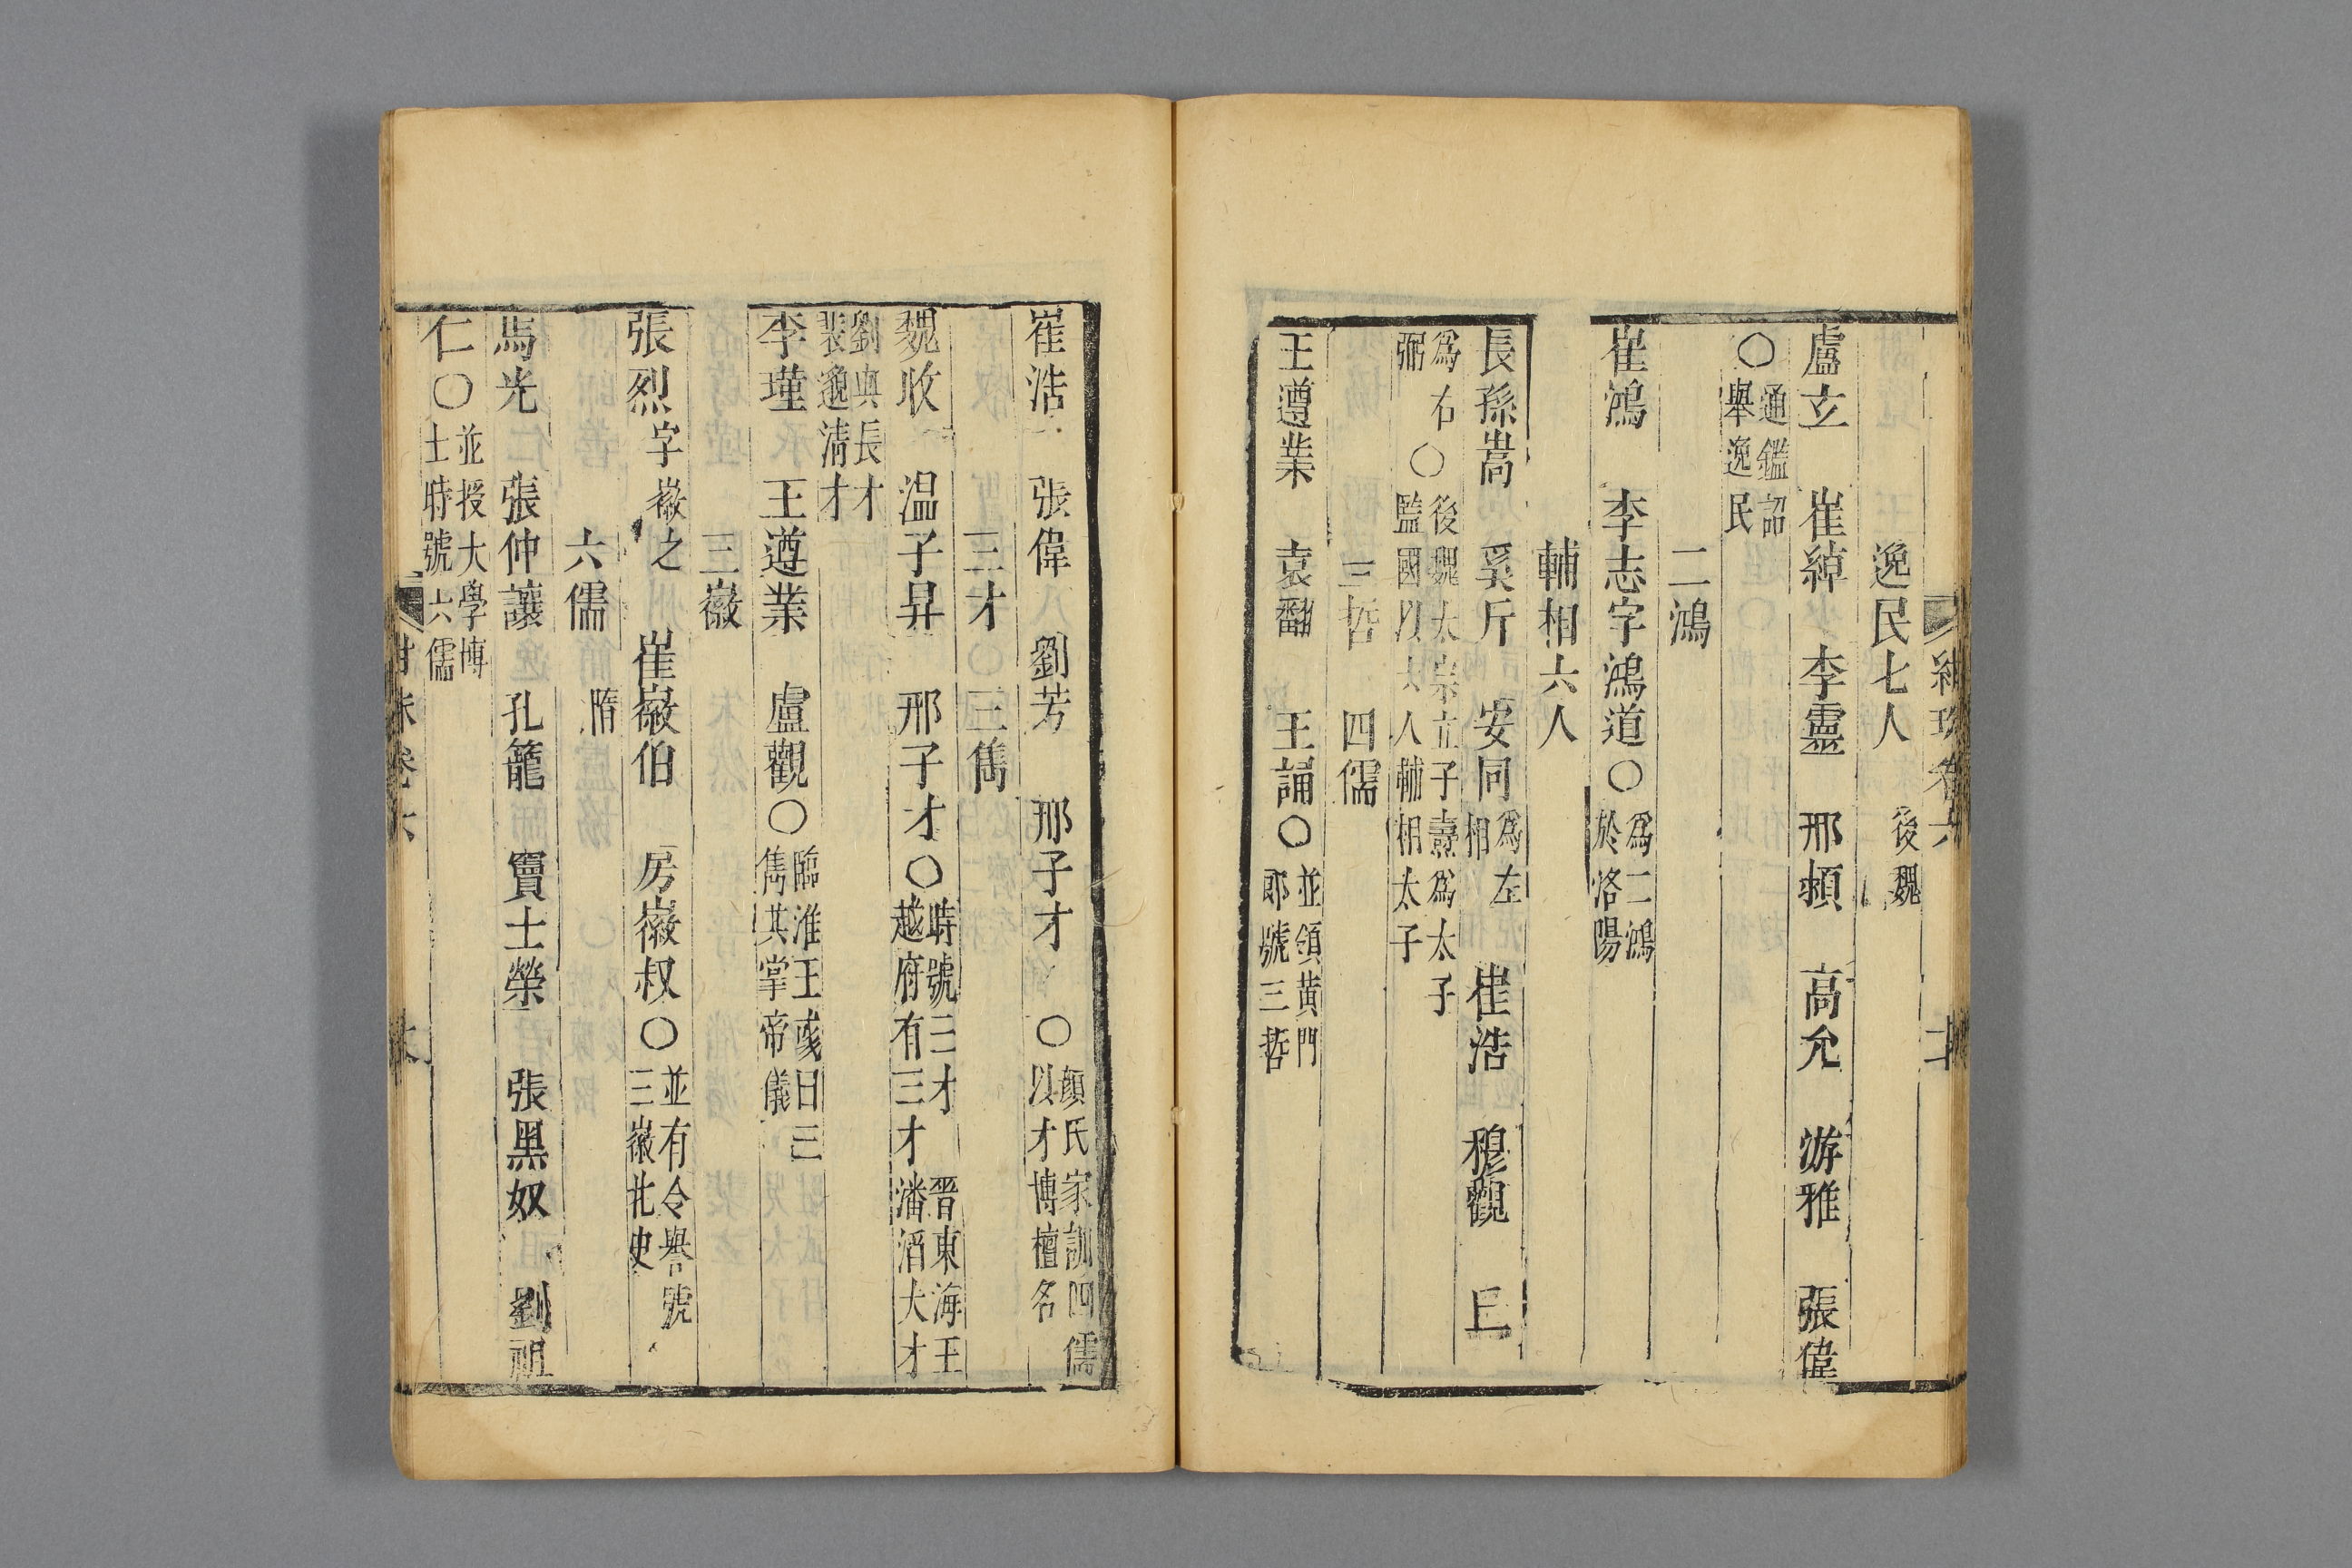 逸民七人 後魏
盧玄 崔綽 李靈 邢頴 高允 游雅 張偉
○通鑑詔舉逸民
二鴻
崔鴻 李志字鴻道○爲二鴻於洛陽
輔相六人
長孫嵩 奚斤 安同爲左相 崔浩 穆觀 丘
爲右弼○後魏太宗立子燾爲太子監國以六人輔相太子
三哲 四儒
王遵業 袁翻 王誦○並領黃門郎號三哲
崔浩 張偉 劉芳 邢子才 ○顔氏家訓四儒以才博檀名
三才 三儁
魏收 温子昇 邢子才○時號三才 晉東海王越府有三才潘滔大才
劉輿長才裴邈清才
李瑾 王遵業 盧觀○臨淮王彧曰三儁其掌帝儀
三徽
張烈字徽之 崔徽伯 房徽叔○並有令譽號三徽北史
六儒 隋
馬光 張仲讓 孔籠 竇士榮 張黑奴 劉祖
仁○並授大學博士時號六儒